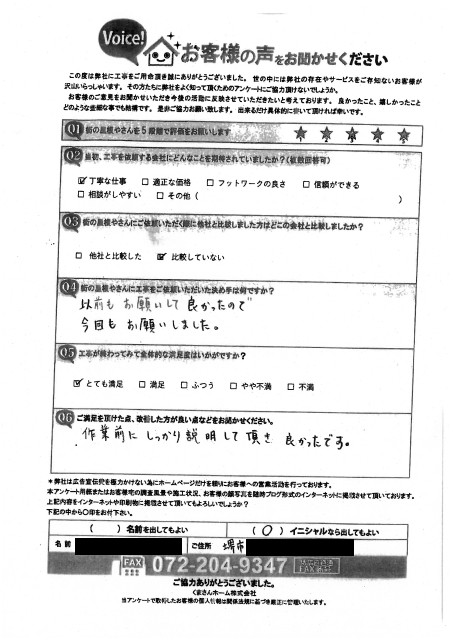 Voice!
お客様の声をお聞かせください
この度は弊社に工事をご用命頂き誠にありがとうございました。世の中には弊社の存在やサービスをご存知ないお客様が
沢山いらっしゃいます。その方たちに弊社をよく知って頂くためのアンケートにご協力頂けないでしょうか。
お客様のご意見をお聞かせいただき今後の活動に反映させていただきたいと考えております。良かったこと、嬉しかったこと
どのような些細な事でも結構です。是非ご協力お願い致します。出来るだけ具体的に書いて頂ければ幸いです。
Q1 街の屋根やさんを5段階で評価をお願いします ★ ★ ★ ★ ★
Q2 当初、工事を依頼する会社にどんなことを期待されていましたか?(複数回答可)
☑ 丁寧な仕事 □ 適正な価格 □ フットワークの良さ □ 信頼ができる
□ 相談がしやすい □ その他( )
Q3 街の屋根やさんにご依頼いただく際に他社と比較しました方はどこの会社と比較しましたか?
□ 他社と比較した ☑ 比較していない
Q4 街の屋根やさんに工事をご依頼いただいた決め手は何ですか?
以前も お願いして 良かったので
今回も お願いしました。
Q5 工事が終わってみて全体的な満足度はいかがですか?
☑ とても満足 □ 満足 □ ふつう □ やや不満 □ 不満
Q6 ご満足を頂けた点、改善した方が良い点などをお聞かせください。
作業前に しっかり説明して頂き 良かったです。
*弊社は広告宣伝費を極力かけない為にホームページだけを頼りにお客様への営業活動を行っております。
本アンケート用紙またはお客様宅の調査風景や施工状況、お客様の顔写真を随時ブログ形式のインターネットに掲載させて頂いております。
上記内容をインターネットや印刷物に掲載させて頂いてもよろしいでしょうか?
下記の中から〇印をお付下さい。
( ) 名前を出してもよい ( 〇 ) イニシャルなら出してもよい
名前 ご住所 堺市
FAX 072-204-9347
ご協力ありがとうございました。
くまさんホーム株式会社
当アンケートで取得したお客様の個人情報は関係法規に基づき厳正に管理いたします。